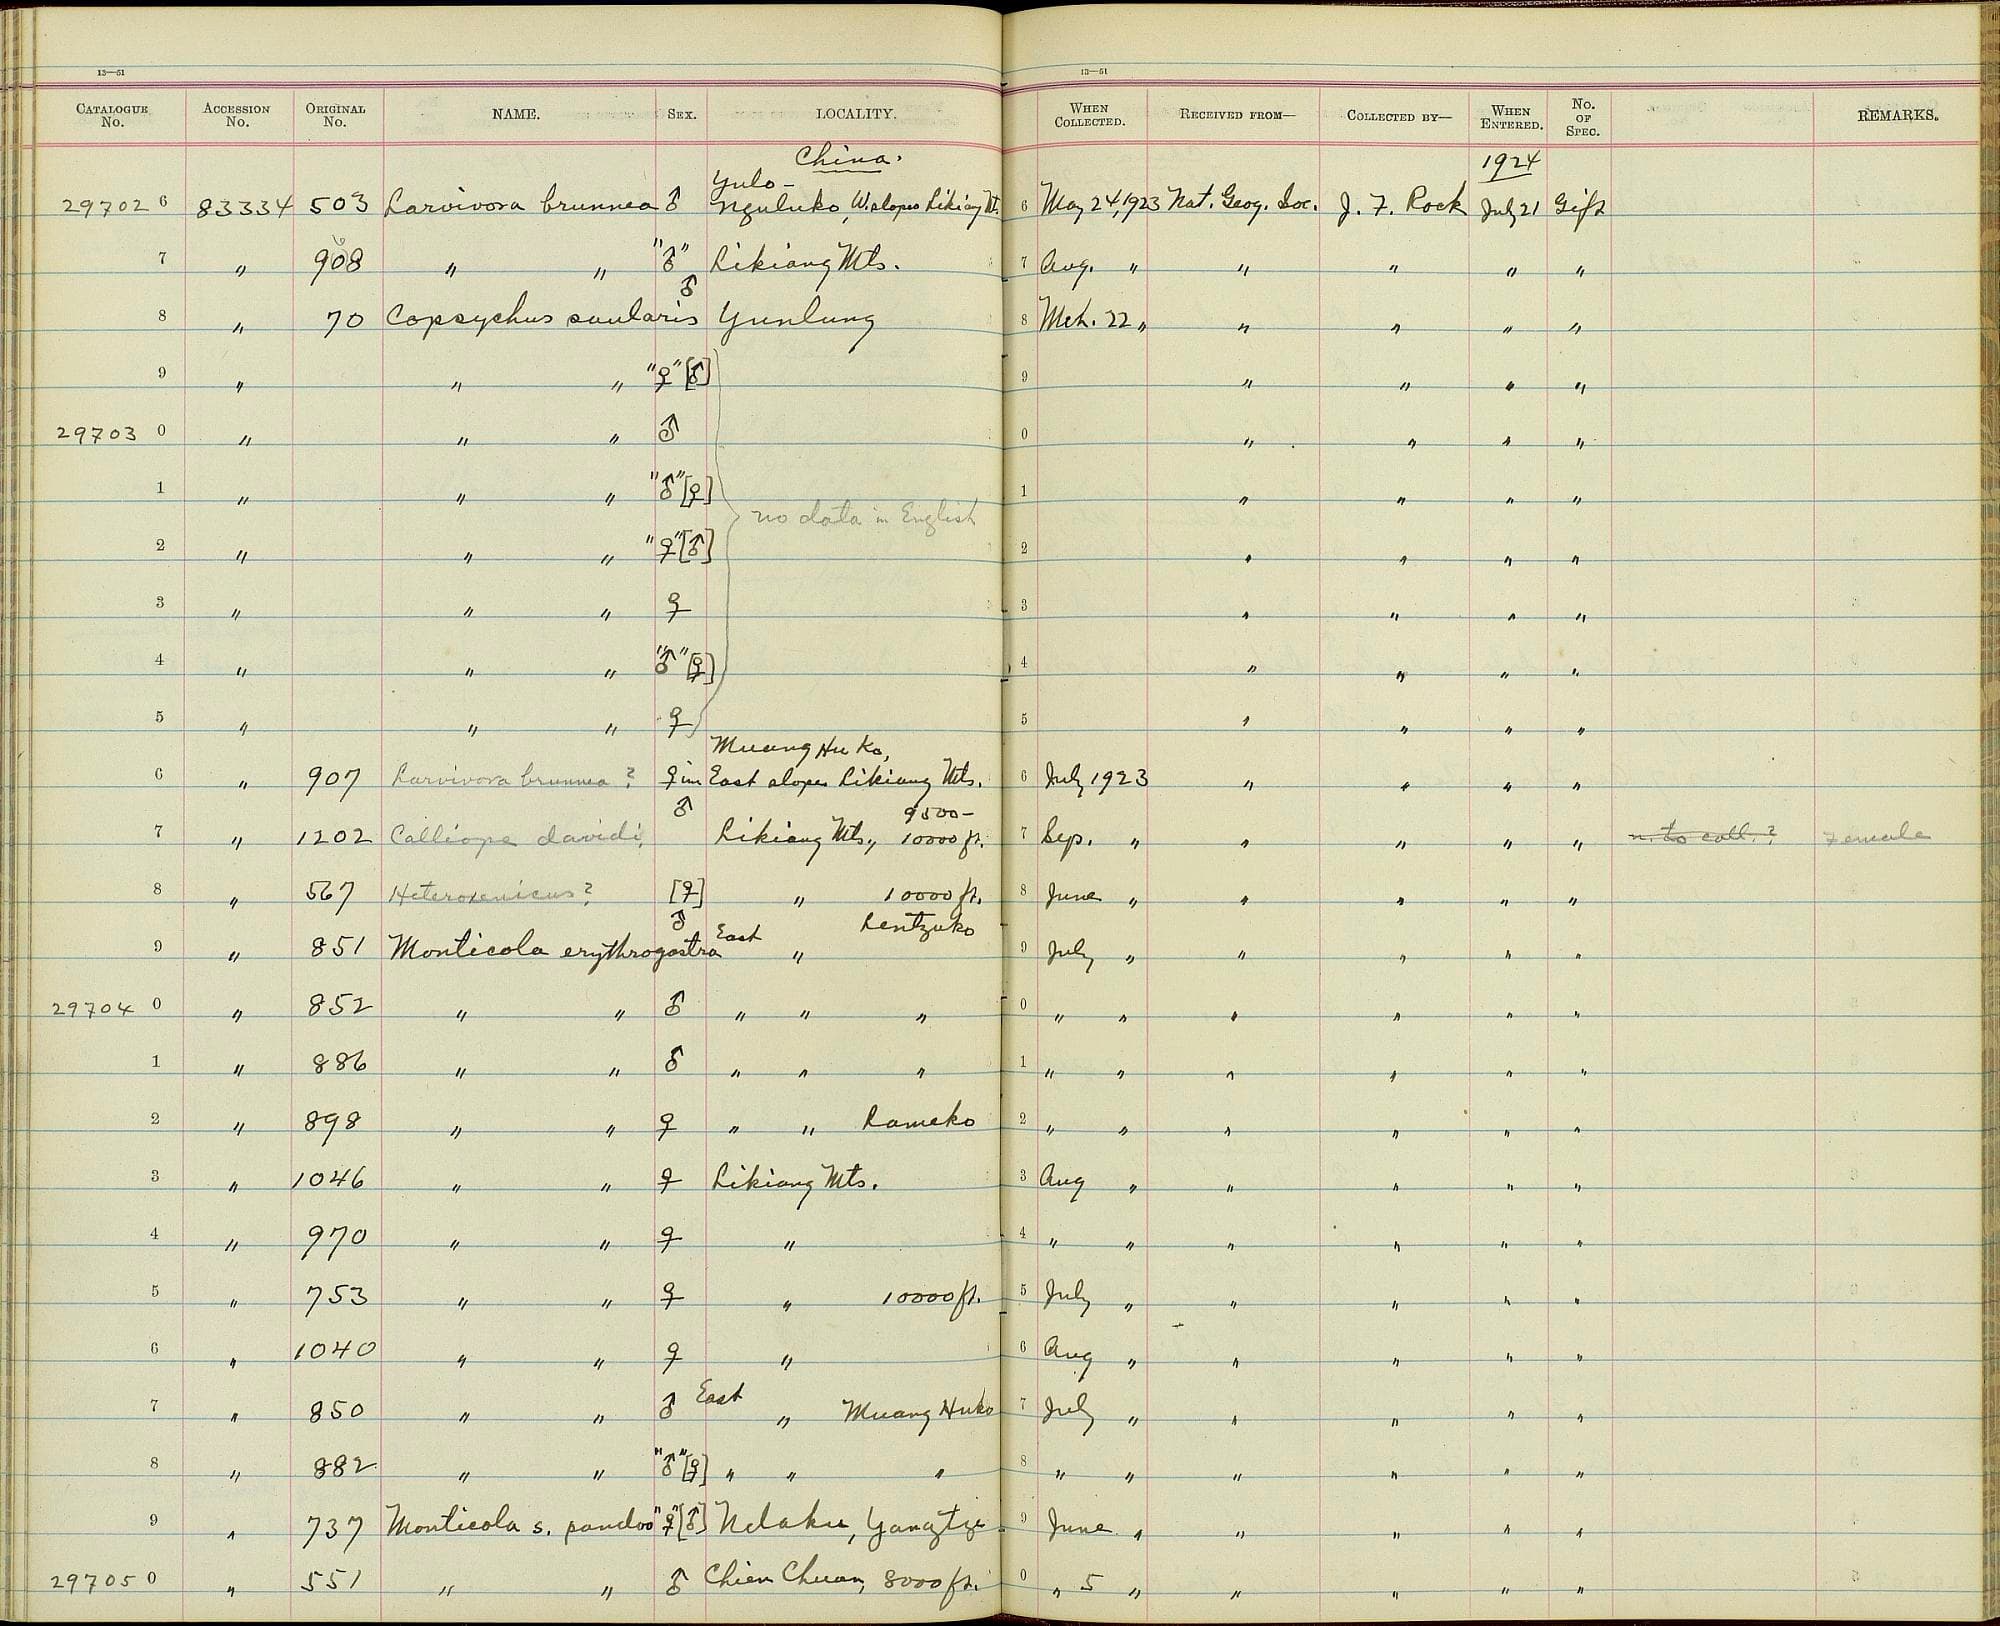 13—51 13—51
Catalogue No. Accession No. Original No. NAME. Sex. LOCALITY. When Collected. Received from— Collected by— When Entered. No. of Spec. REMARKS.
China. 1924
Yulo-
29702 6 83334 503 Larvivora brunnea ♂ Nguluko, W. slopes Likiang Mt. 6 May 24, 1923 Nat. Geog. Soc. J. F. Rock July 21 Gift
7 " 908 " " "♂" Likiang Mts. 7 Aug. " " " " "
8 " 70 Copsychus saularis ♂ Yunlung 8 Mch. 22 " " " " "
9 " " " "♀" [♂] 9 " " " "
29703 0 " " " ♂ 0 " " " "
1 " " " "♂" [♀] 1 " " " "
no data in English
2 " " " "♀" [♂] 2 " " " "
3 " " " ♀ 3 " " " "
4 " " " "♂" [♀] 4 " " " "
5 " " " ♀ 5 " " " "
Muang Hu Ko,
6 " 907 Larvivora brunnea ? ♀ im East slopes Likiang Mts. 6 July 1923 " " " "
9500-
7 " 1202 Calliope davidi, ♂ Likiang Mts., 10000 ft. 7 Sep. " " " " " n. to coll. ? Female
8 " 567 Heteroxenicus ? [♀] " 10000 ft. 8 June " " " " "
9 " 851 Monticola erythrogastra ♂ East " Lentzuko 9 July " " " " "
29704 0 " 852 " " ♂ " " " 0 " " " " " "
1 " 886 " " ♂ " " " 1 " " " " " "
2 " 898 " " ♀ " " Lameko 2 " " " " " "
3 " 1046 " " ♀ Likiang Mts. 3 Aug " " " " "
4 " 970 " " ♀ " 4 " " " " " "
5 " 753 " " ♀ " 10000 ft. 5 July " " " " "
6 " 1040 " " ♀ " 6 Aug " " " " "
7 " 850 " " ♂ East " Muang Huko 7 July " " " " "
8 " 882 " " "♂" [♀] " " " 8 " " " " " "
9 " 737 Monticola s. pandoo "♀" [♂] Ndaku, Yangtze 9 June " " " " "
29705 0 " 551 " " ♂ Chien Chuan, 8000 ft. 0 " 5 " " " " "